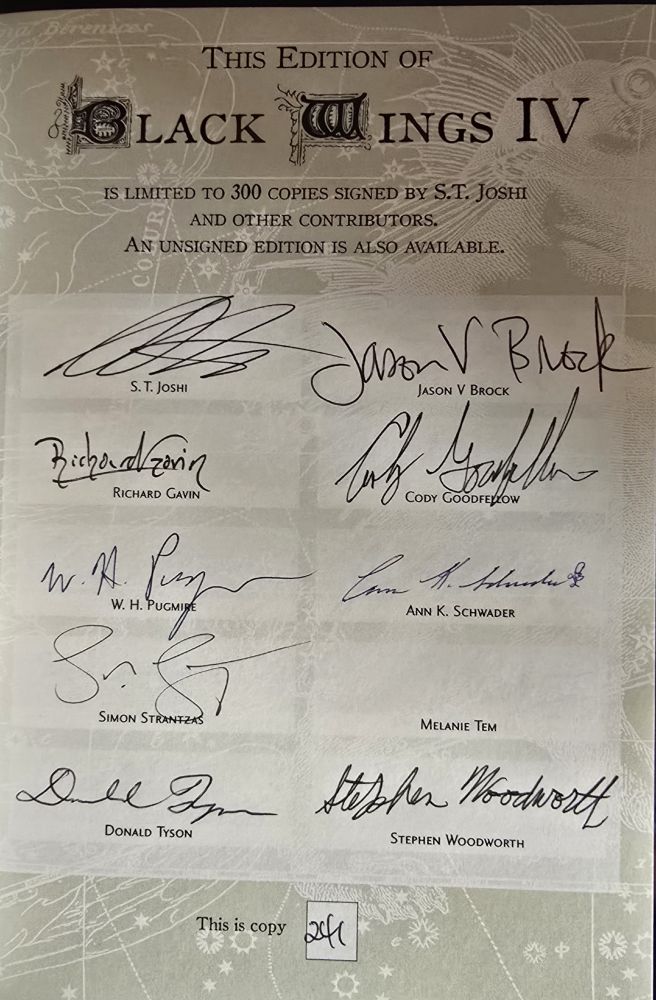 na Berenices
THIS EDITION OF
BLACK WINGS IV
IS LIMITED TO 300 COPIES SIGNED BY S.T. JOSHI
AND OTHER CONTRIBUTORS.
AN UNSIGNED EDITION IS ALSO AVAILABLE.
Jason V Brock
S. T. JOSHI
JASON V BROCK
Richard Gavin
Cody Goodfellow
RICHARD GAVIN
CODY GOODFELLOW
W. H. Pugmire
Ann K. Schwader
W. H. PUGMIRE
ANN K. SCHWADER
SIMON STRANTZAS
MELANIE TEM
Donald Tyson
Stephen Woodworth
DONALD TYSON
STEPHEN WOODWORTH
This is copy 241